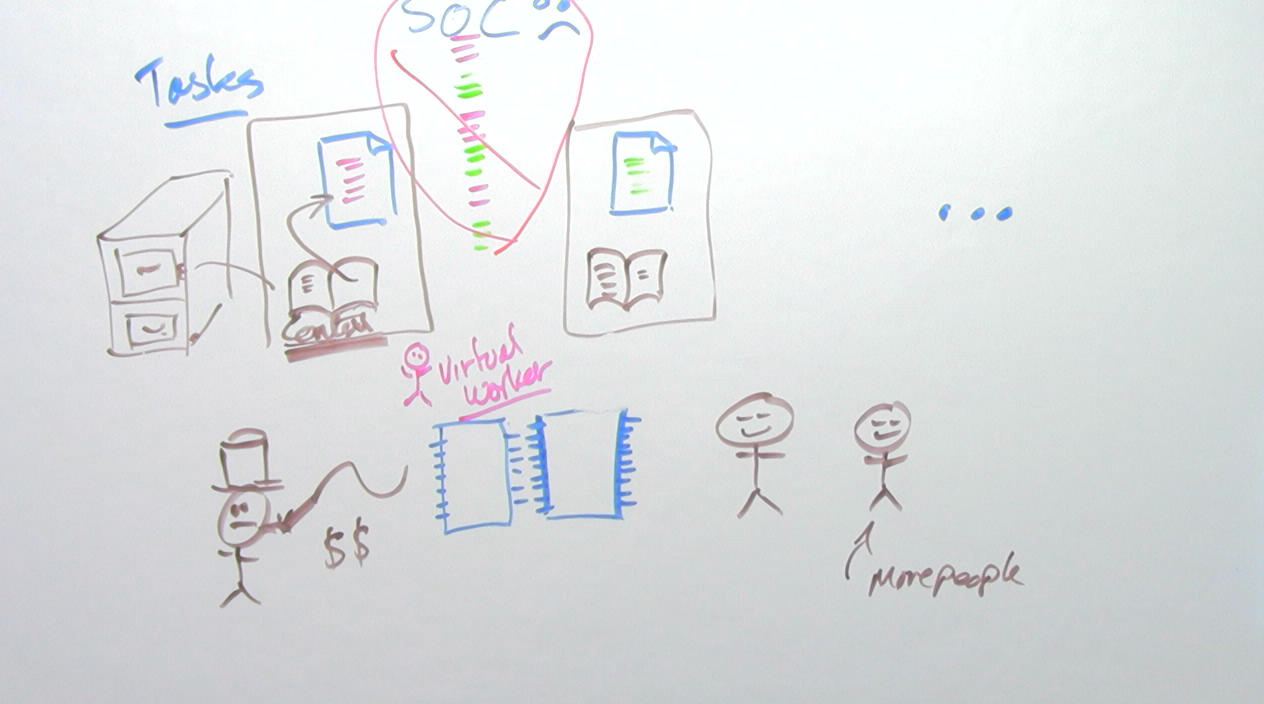 SOC
Tasks
Context
Virtual
Worker
$$
More people